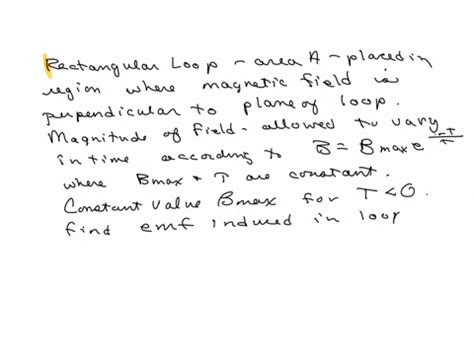 Rectangular Loop - area A - placed in
region where magnetic field is
perpendicular to plane of loop.
Magnitude of field - allowed to vary
in time according to B = Bmax e^(-T/τ)
where Bmax + τ are constant.
Constant value Bmax for T < 0.
find emf induced in loop